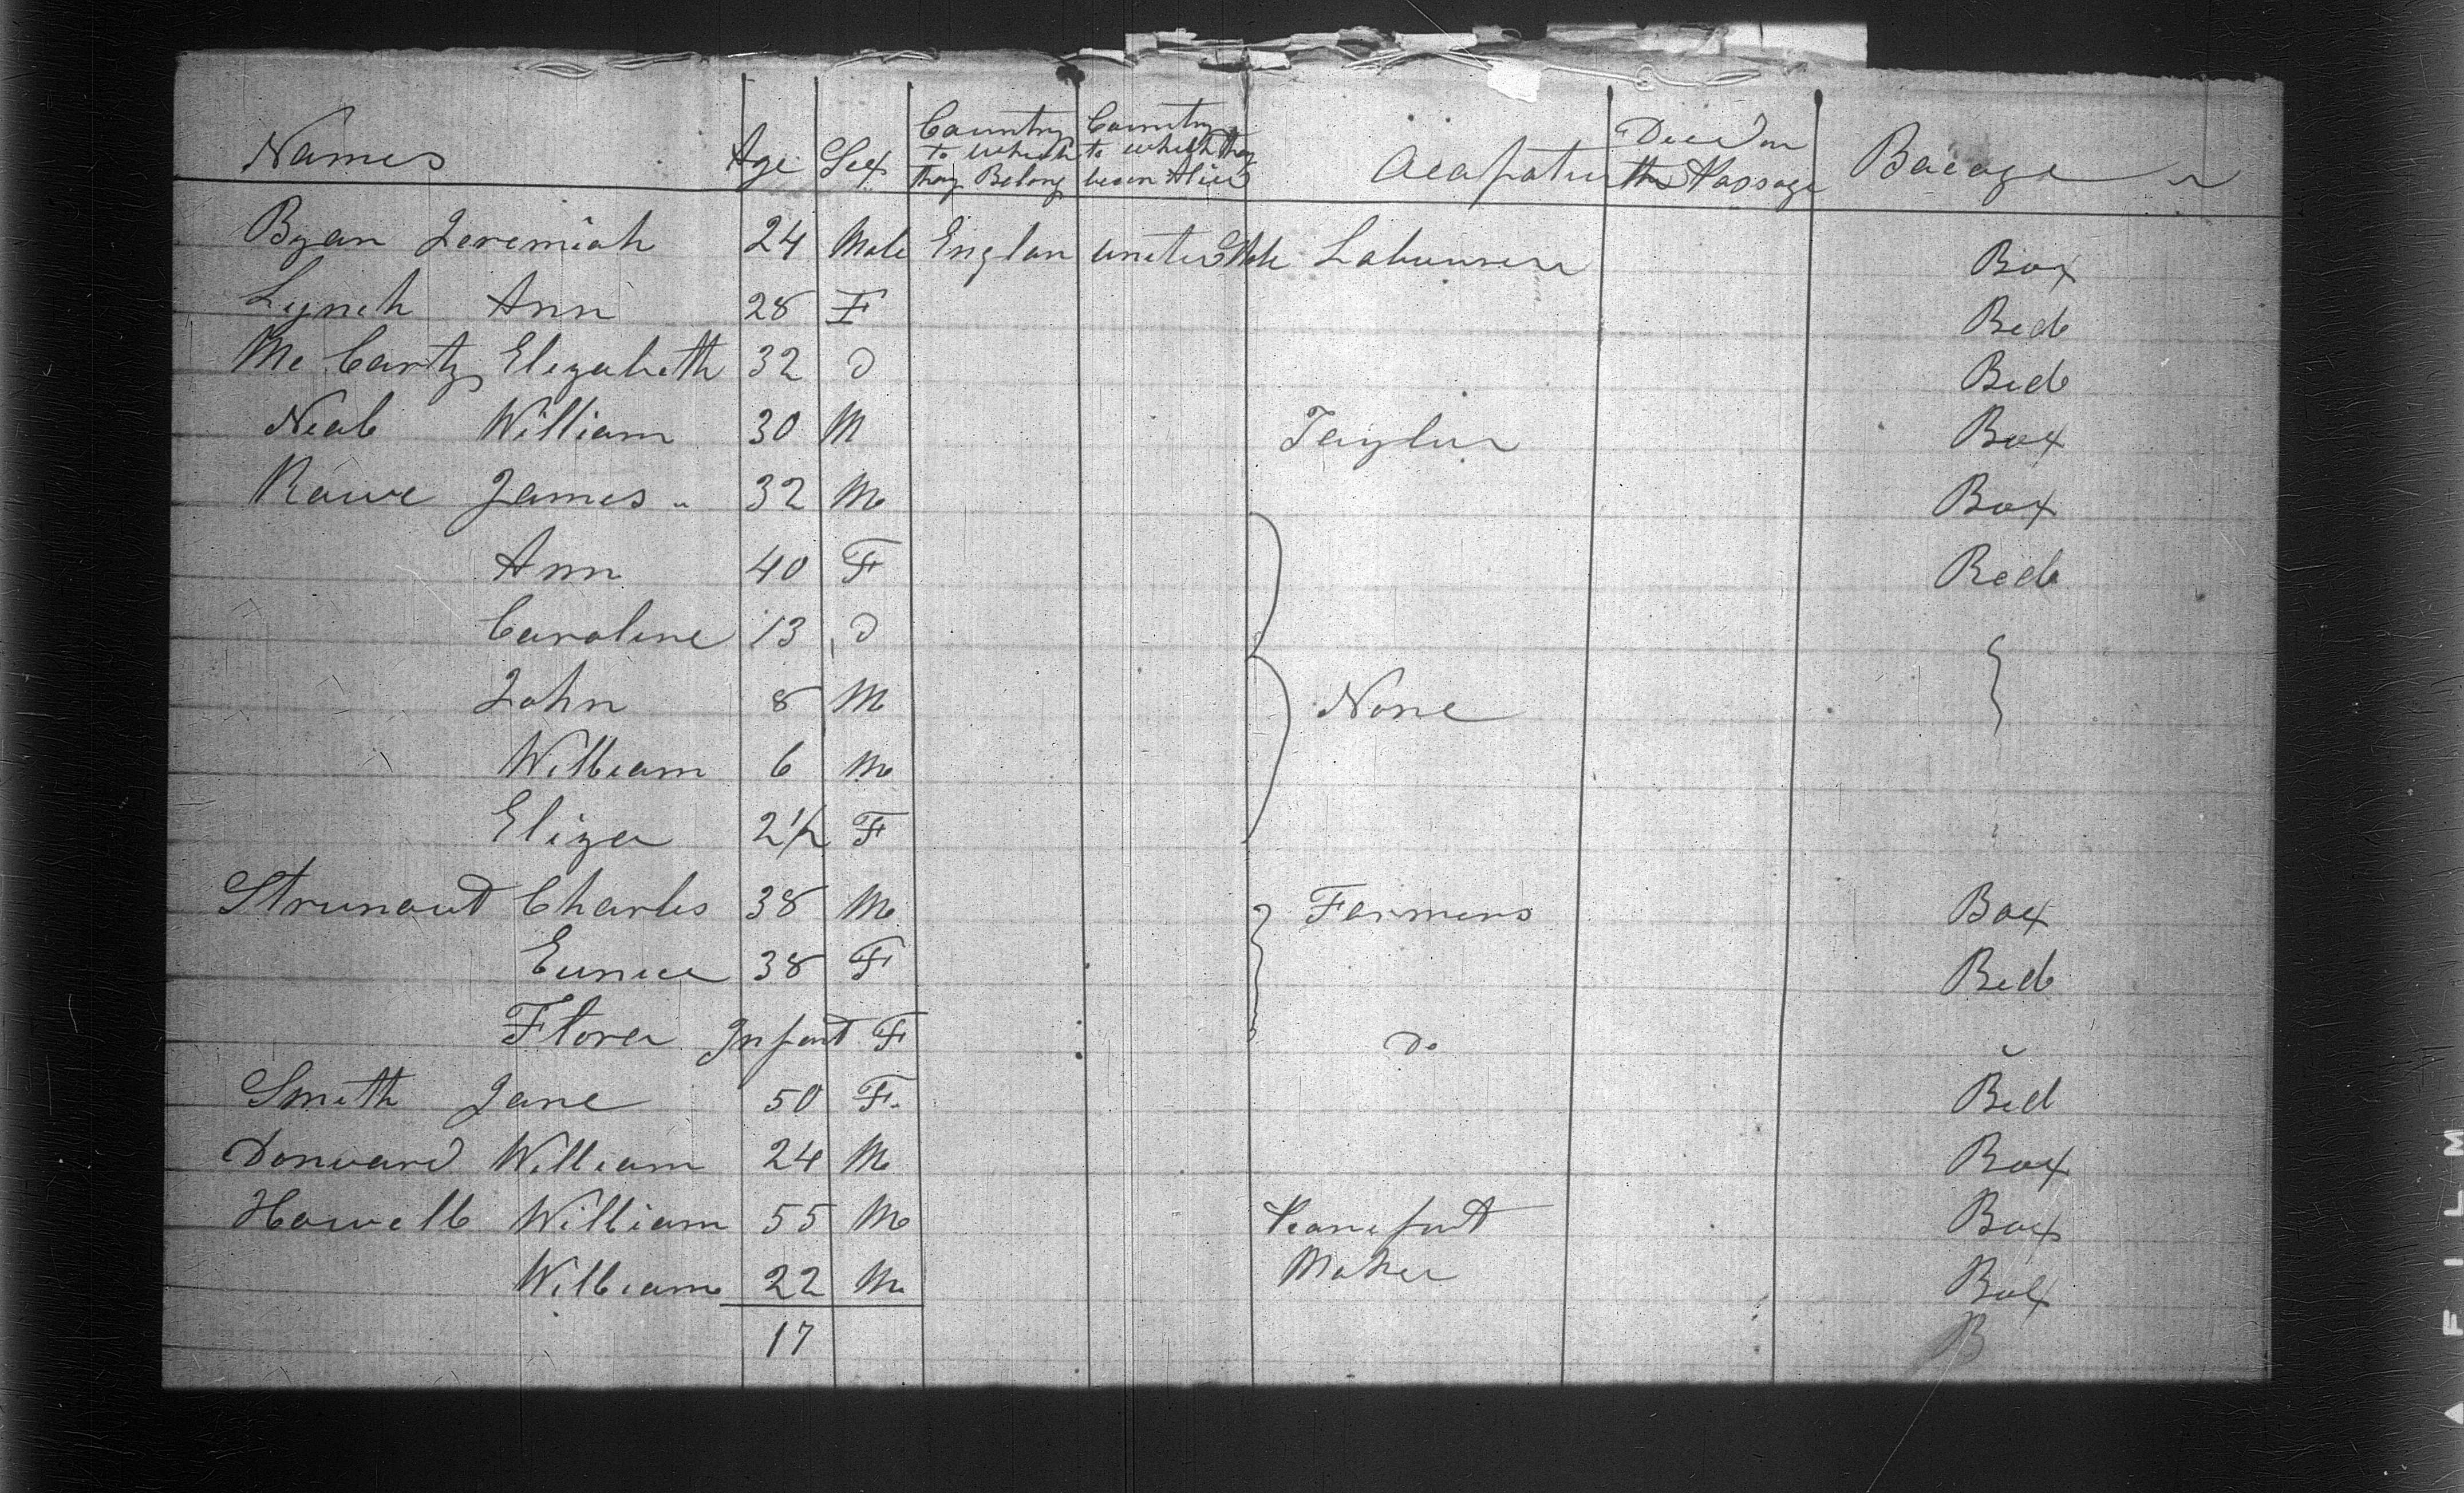 Names Age Sex Country to which they Belong Country to which they Ocapation Died on the Passage Bacage
Byan Jeremiah 24 Male Englan unite State Labourer Box
Lynch Ann 28 F Bed
Mc Carty Elizabeth 32 D Bed
Neal William 30 M Taylur Box
Rowe James 32 M Box
Ann 40 F Bed
Caroline 13 D
John 8 M None
William 6 M
Eliza 2 1/2 F
Charles 38 M Farmers Box
Eunice 38 F Bed
Flora Infant F Do
Smith Jane 50 F. Bed
Donward William 24 M Box
Howell William 55 M Box
William 22 M Maker Box
17
B
FILM